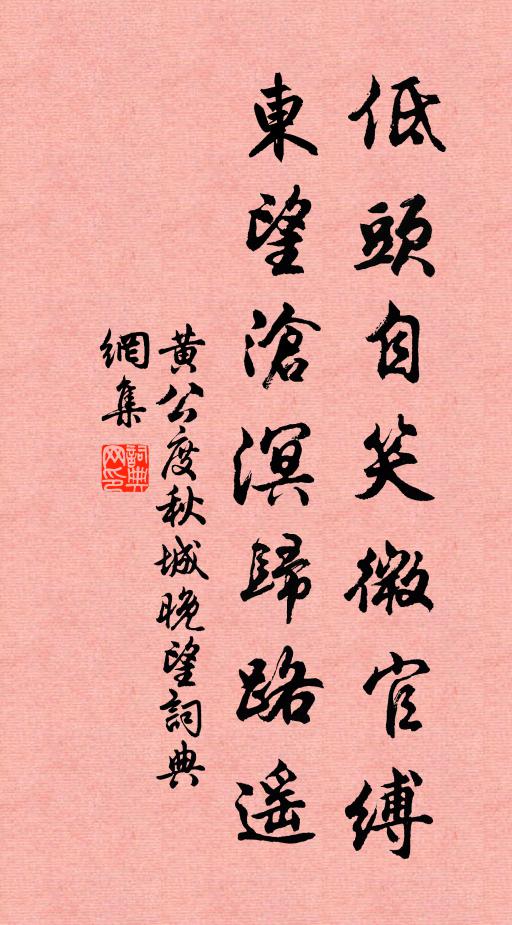 低頭自笑微官縛
東望滄溟歸路遥
黄公度秋城晚望詞典
網集
詞典
网印